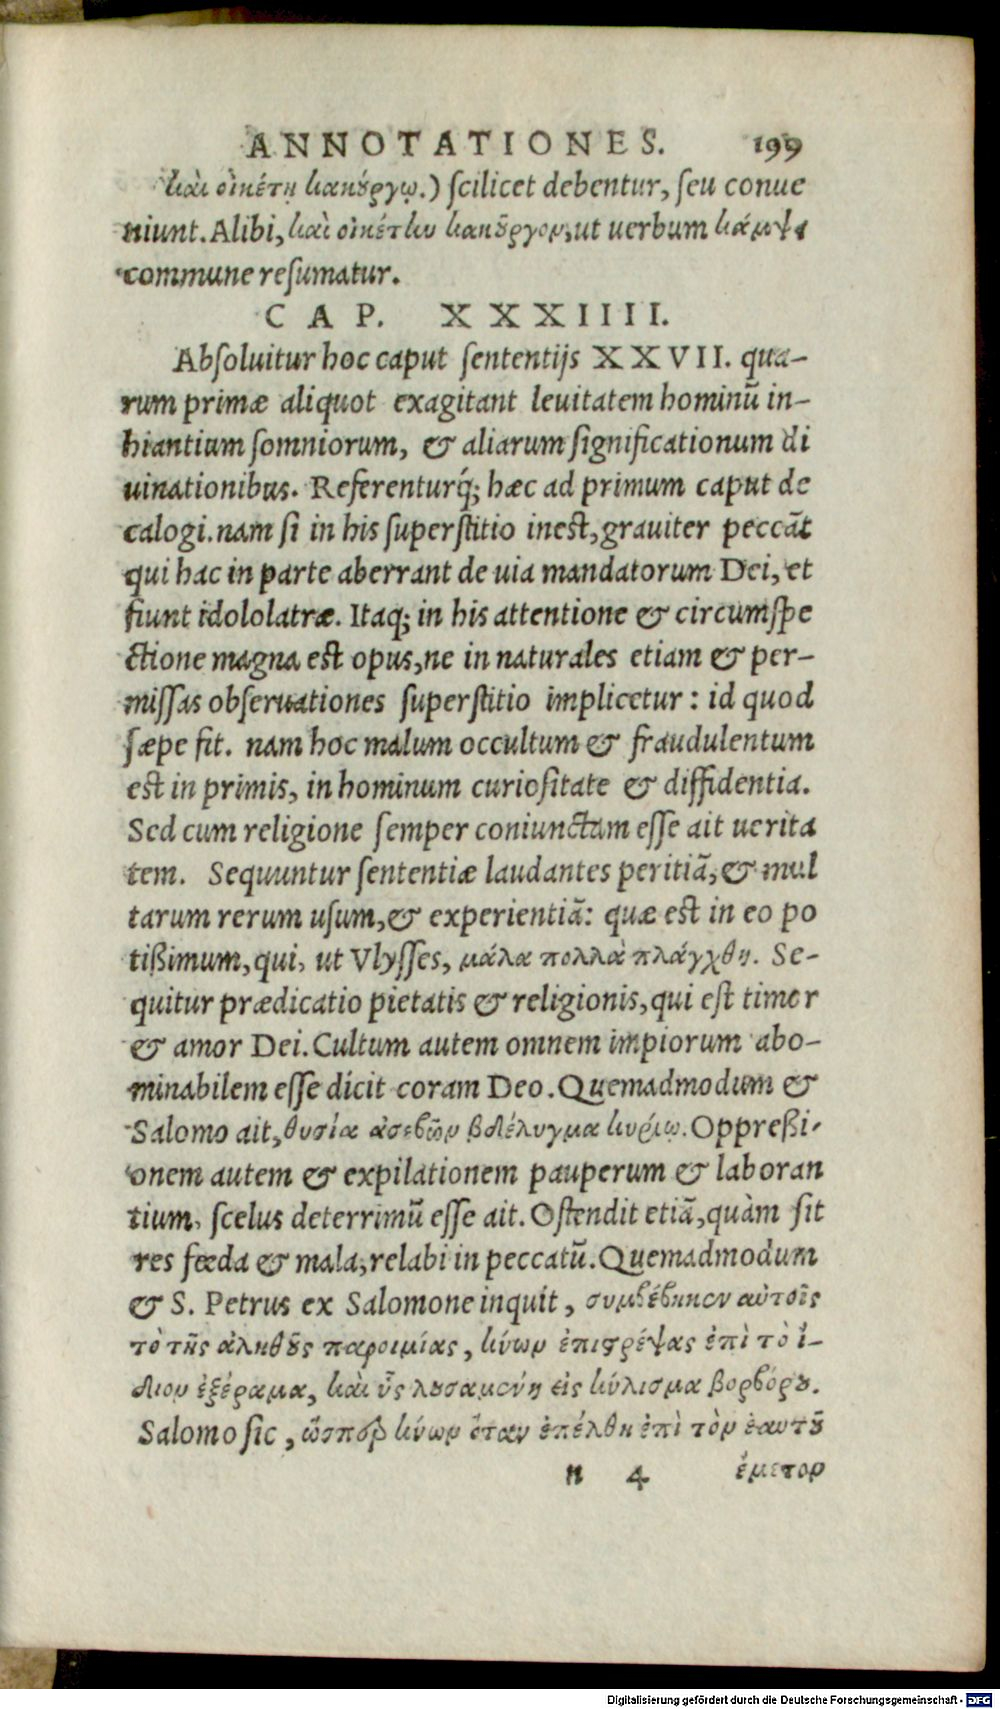 ANNOTATIONES. 199
καὶ οἰκέτῃ κακούργῳ.) ſcilicet debentur, ſeu conue
niunt. Alibi, καὶ οἰκέτην κακοῦργον, ut uerbum κάμψει
commune reſumatur.
CAP. XXXIIII.
Abſoluitur hoc caput ſententijs XXVII. qua-
rum primæ aliquot exagitant leuitatem hominū in-
hiantium ſomniorum, & aliarum ſignificationum di
uinationibus. Referenturq́; hæc ad primum caput de
calogi. nam ſi in his ſuperſtitio ineſt, grauiter peccāt
qui hac in parte aberrant de uia mandatorum Dei, et
fiunt idololatræ. Itaq; in his attentione & circumſpe
ctione magna eſt opus, ne in naturales etiam & per-
miſſas obſeruationes ſuperſtitio implicetur: id quod
ſæpe fit. nam hoc malum occultum & fraudulentum
eſt in primis, in hominum curioſitate & diffidentia.
Sed cum religione ſemper coniunctam eſſe ait uerita
tem. Sequuntur ſententiæ laudantes peritiā, & mul
tarum rerum uſum, & experientiā: quæ eſt in eo po
tißimum, qui, ut Vlyſſes, μάλα πολλὰ πλάγχθη. Se-
quitur prædicatio pietatis & religionis, qui eſt timor
& amor Dei. Cultum autem omnem impiorum abo-
minabilem eſſe dicit coram Deo. Quemadmodum &
Salomo ait, θυσία ἀσεβῶν βδέλυγμα κυρίῳ. Oppreßi-
onem autem & expilationem pauperum & laboran
tium, ſcelus deterrimū eſſe ait. Oſtendit etiā, quàm ſit
res fœda & mala, relabi in peccatū. Quemadmodum
& S. Petrus ex Salomone inquit, συμβέβηκεν αὐτοῖς
τὸ τῆς ἀληθοῦς παροιμίας, κύων ἐπιστρέψας ἐπὶ τὸ ἴ-
διον ἐξέραμα, καὶ ὗς λουσαμένη εἰς κύλισμα βορβόρου.
Salomo ſic, ὥσπερ κύων ὅταν ἐπέλθῃ ἐπὶ τὸν ἑαυτοῦ
n 4 ἔμετον
Digitalisierung gefördert durch die Deutsche Forschungsgemeinschaft - DFG